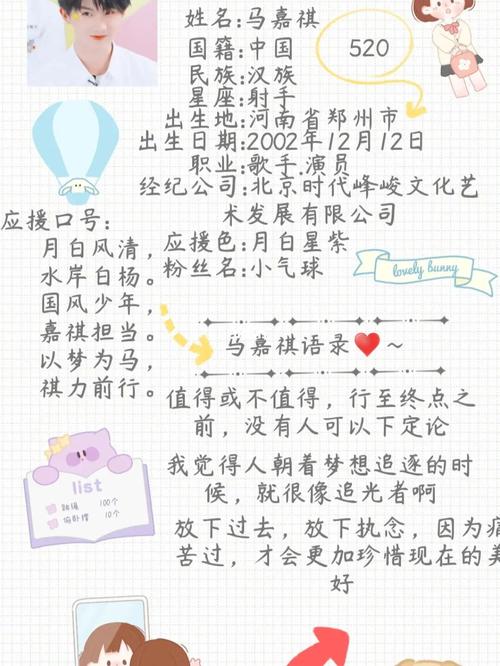 姓名:马嘉祺
国籍:中国
520
民族:汉族
星座:射手
出生地:河南省郑州市
出生日期:2002年12月12日
职业:歌手.演员
经纪公司:北京时代峰峻文化艺
术发展有限公司
应援色:月白星紫
粉丝名:小气球
lovely bunny
应援口号:
月白风清，
水岸白杨。
国风少年，
嘉祺担当。
以梦为马，
祺力前行。
马嘉祺语录❤️~
值得或不值得，行至终点之
前，没有人可以下定论
我觉得人朝着梦想追逐的时
候，就很像追光者啊
放下过去，放下执念，因为痛
苦过，才会更加珍惜现在的美
好
list
跳绳 100个
仰卧撑 10个